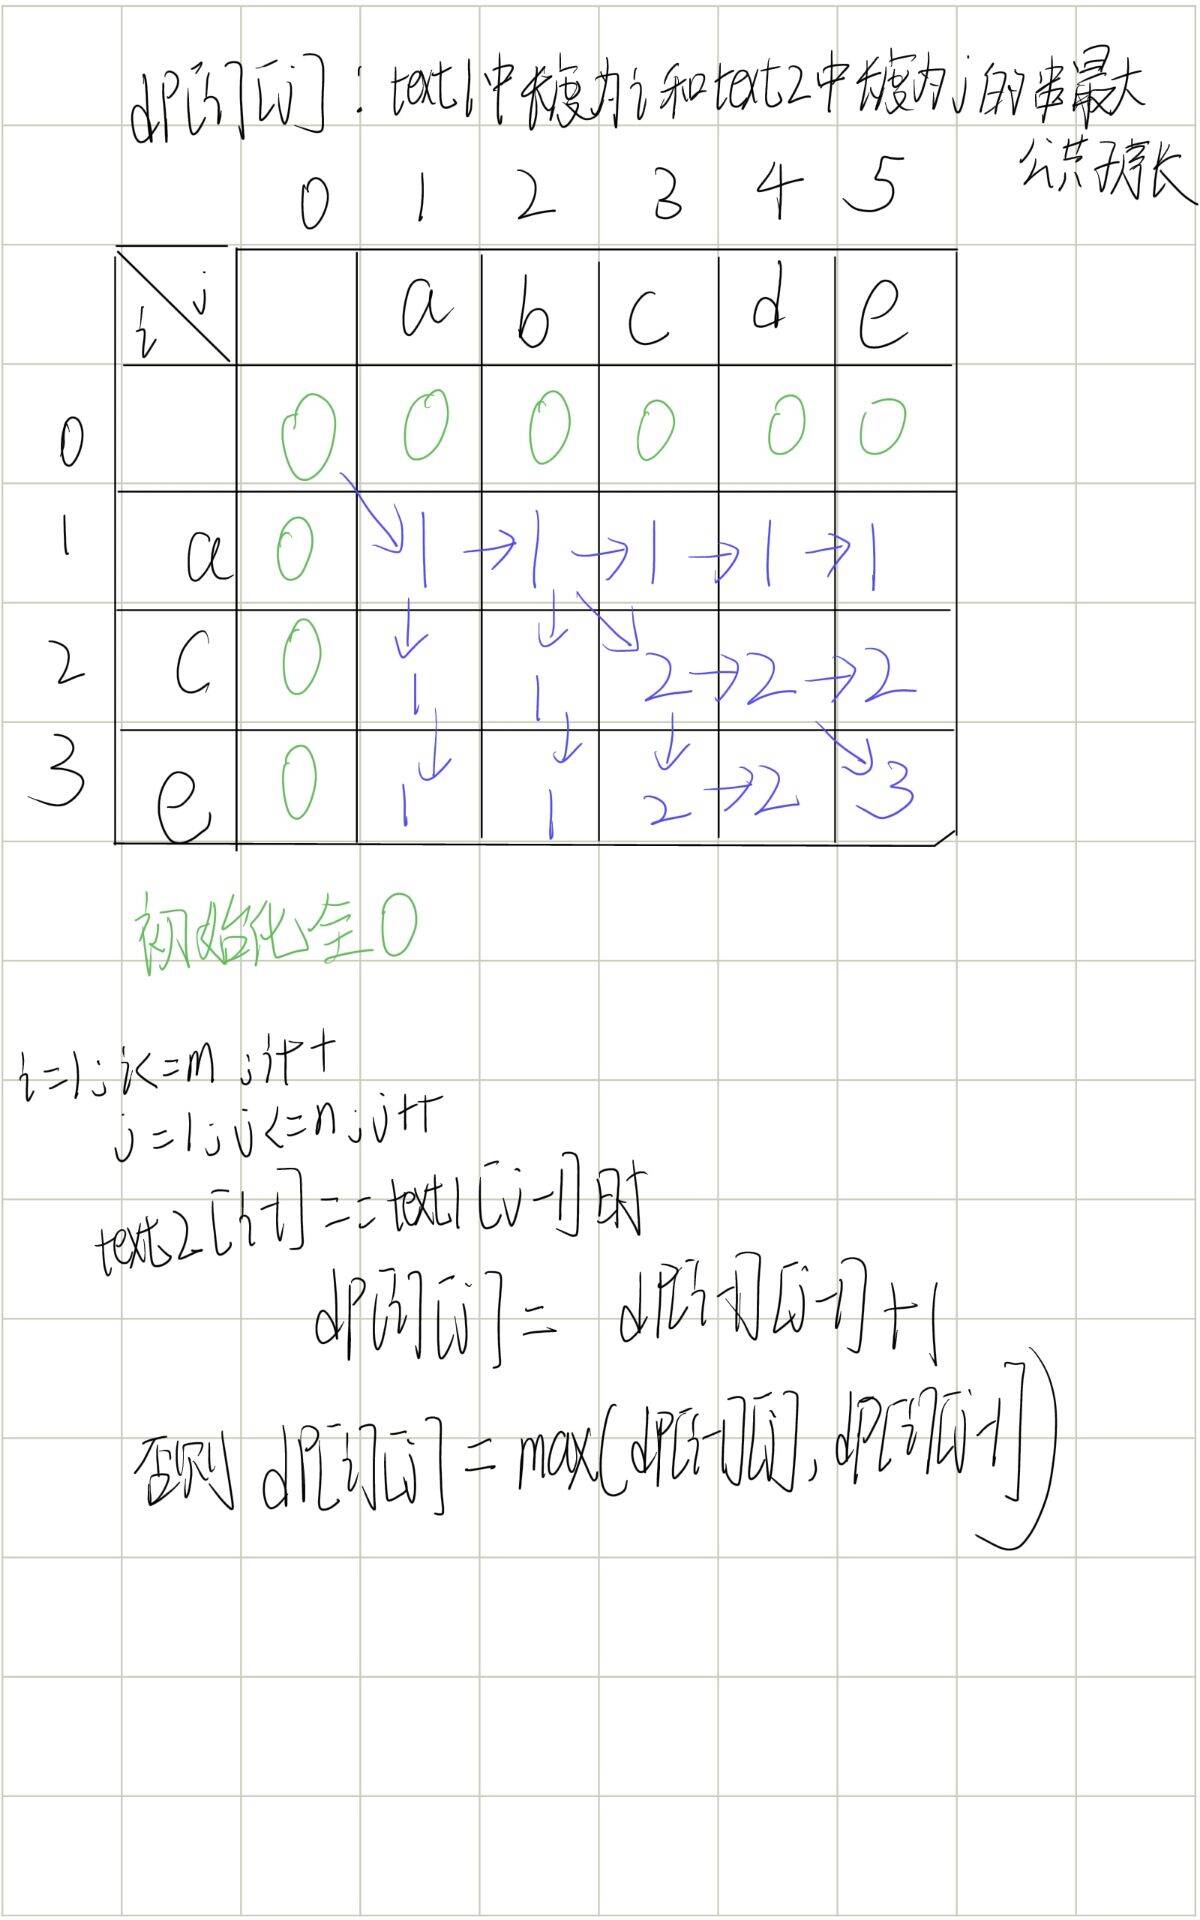 dP[i][j]：text1中长度为i和text2中长度为j的串最大
公共子序长
0 1 2 3 4 5
i j a b c d e
0 0 0 0 0 0 0
1 a 0 1 → 1 → 1 → 1 → 1
2 c 0 1 1 2 → 2 → 2
3 e 0 1 1 2 → 2 3
初始化全0
i=1;i<=m;i++
j=1;j<=n;j++
text2[i-1]==text1[j-1]时
dP[i][j]= dP[i-1][j-1]+1
否则 dP[i][j]=max(dP[i-1][j],dP[i][j-1])